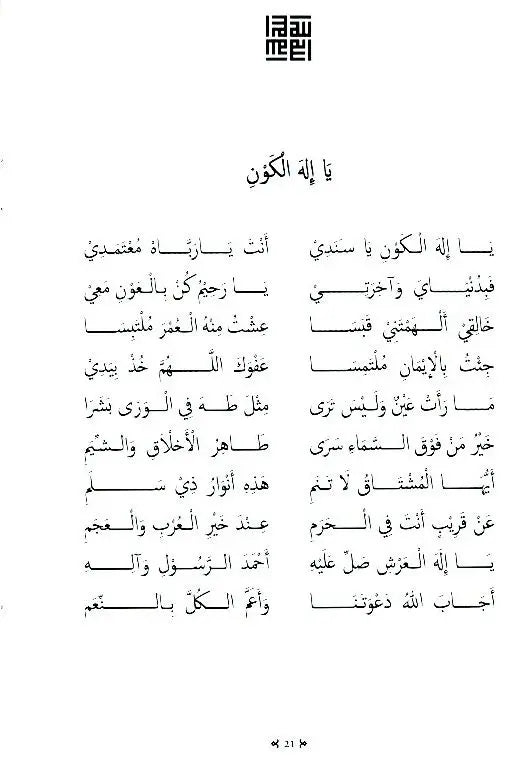 يَا إِلهَ الْكَوْنِ
يَـــا إِلهَ الْـكَوْنِ يَا سَنَدِيْ أَنْتَ يَـــارَبَّـــاهُ مُعْتَمَدِيْ
فَبِدُنْيَـــايَ وَآخِرَتِـــيْ يَـــا رَحِيْمُ كُنْ بِـالْعَوْنِ مَعِيْ
خَالِقِيْ أَلْـهَمْتَنِيْ قَبَسَـا عِشْتُ مِنْهُ الْعُمْرَ مُلْتَبِسَـا
جِئْتُ بِالْإِيْمَانِ مُلْتَمِسَـا عَفْوَكَ اللّٰـــهُمَّ خُذْ بِيَدِيْ
مَـــا رَأَتْ عَيْنٌ وَلَيْسَ تَرَى مِثْلَ طـــهَ فِي الْـوَرَى بَشَرَا
خَيْرُ مَنْ فَوْقَ السَّمَاءِ سَرَى طَـــاهِرُ الْأَخْلَاقِ وَالـشِّيَمِ
أَيُّهَـــا الْمُشْتَـــاقُ لَا تَنَمِ هَذِهِ أَنْوَارُ ذِيْ سَـــلَمِ
عَنْ قَرِيْبٍ أَنْتَ فِي الْـحَرَمِ عِنْدَ خَيْرِ الْعُرْبِ وَالْـعَجَمِ
يَـــا إِلهَ الْعَرْشِ صَلِّ عَلَيْهِ أَحْمَدَ الـرَّسُوْلِ وَآلِـــهِ
أَجَـابَ اللهُ دَعْوَتَنَـــا وَأَعَمَّ الْـكُلَّ بِـالنِّعَمِ
21